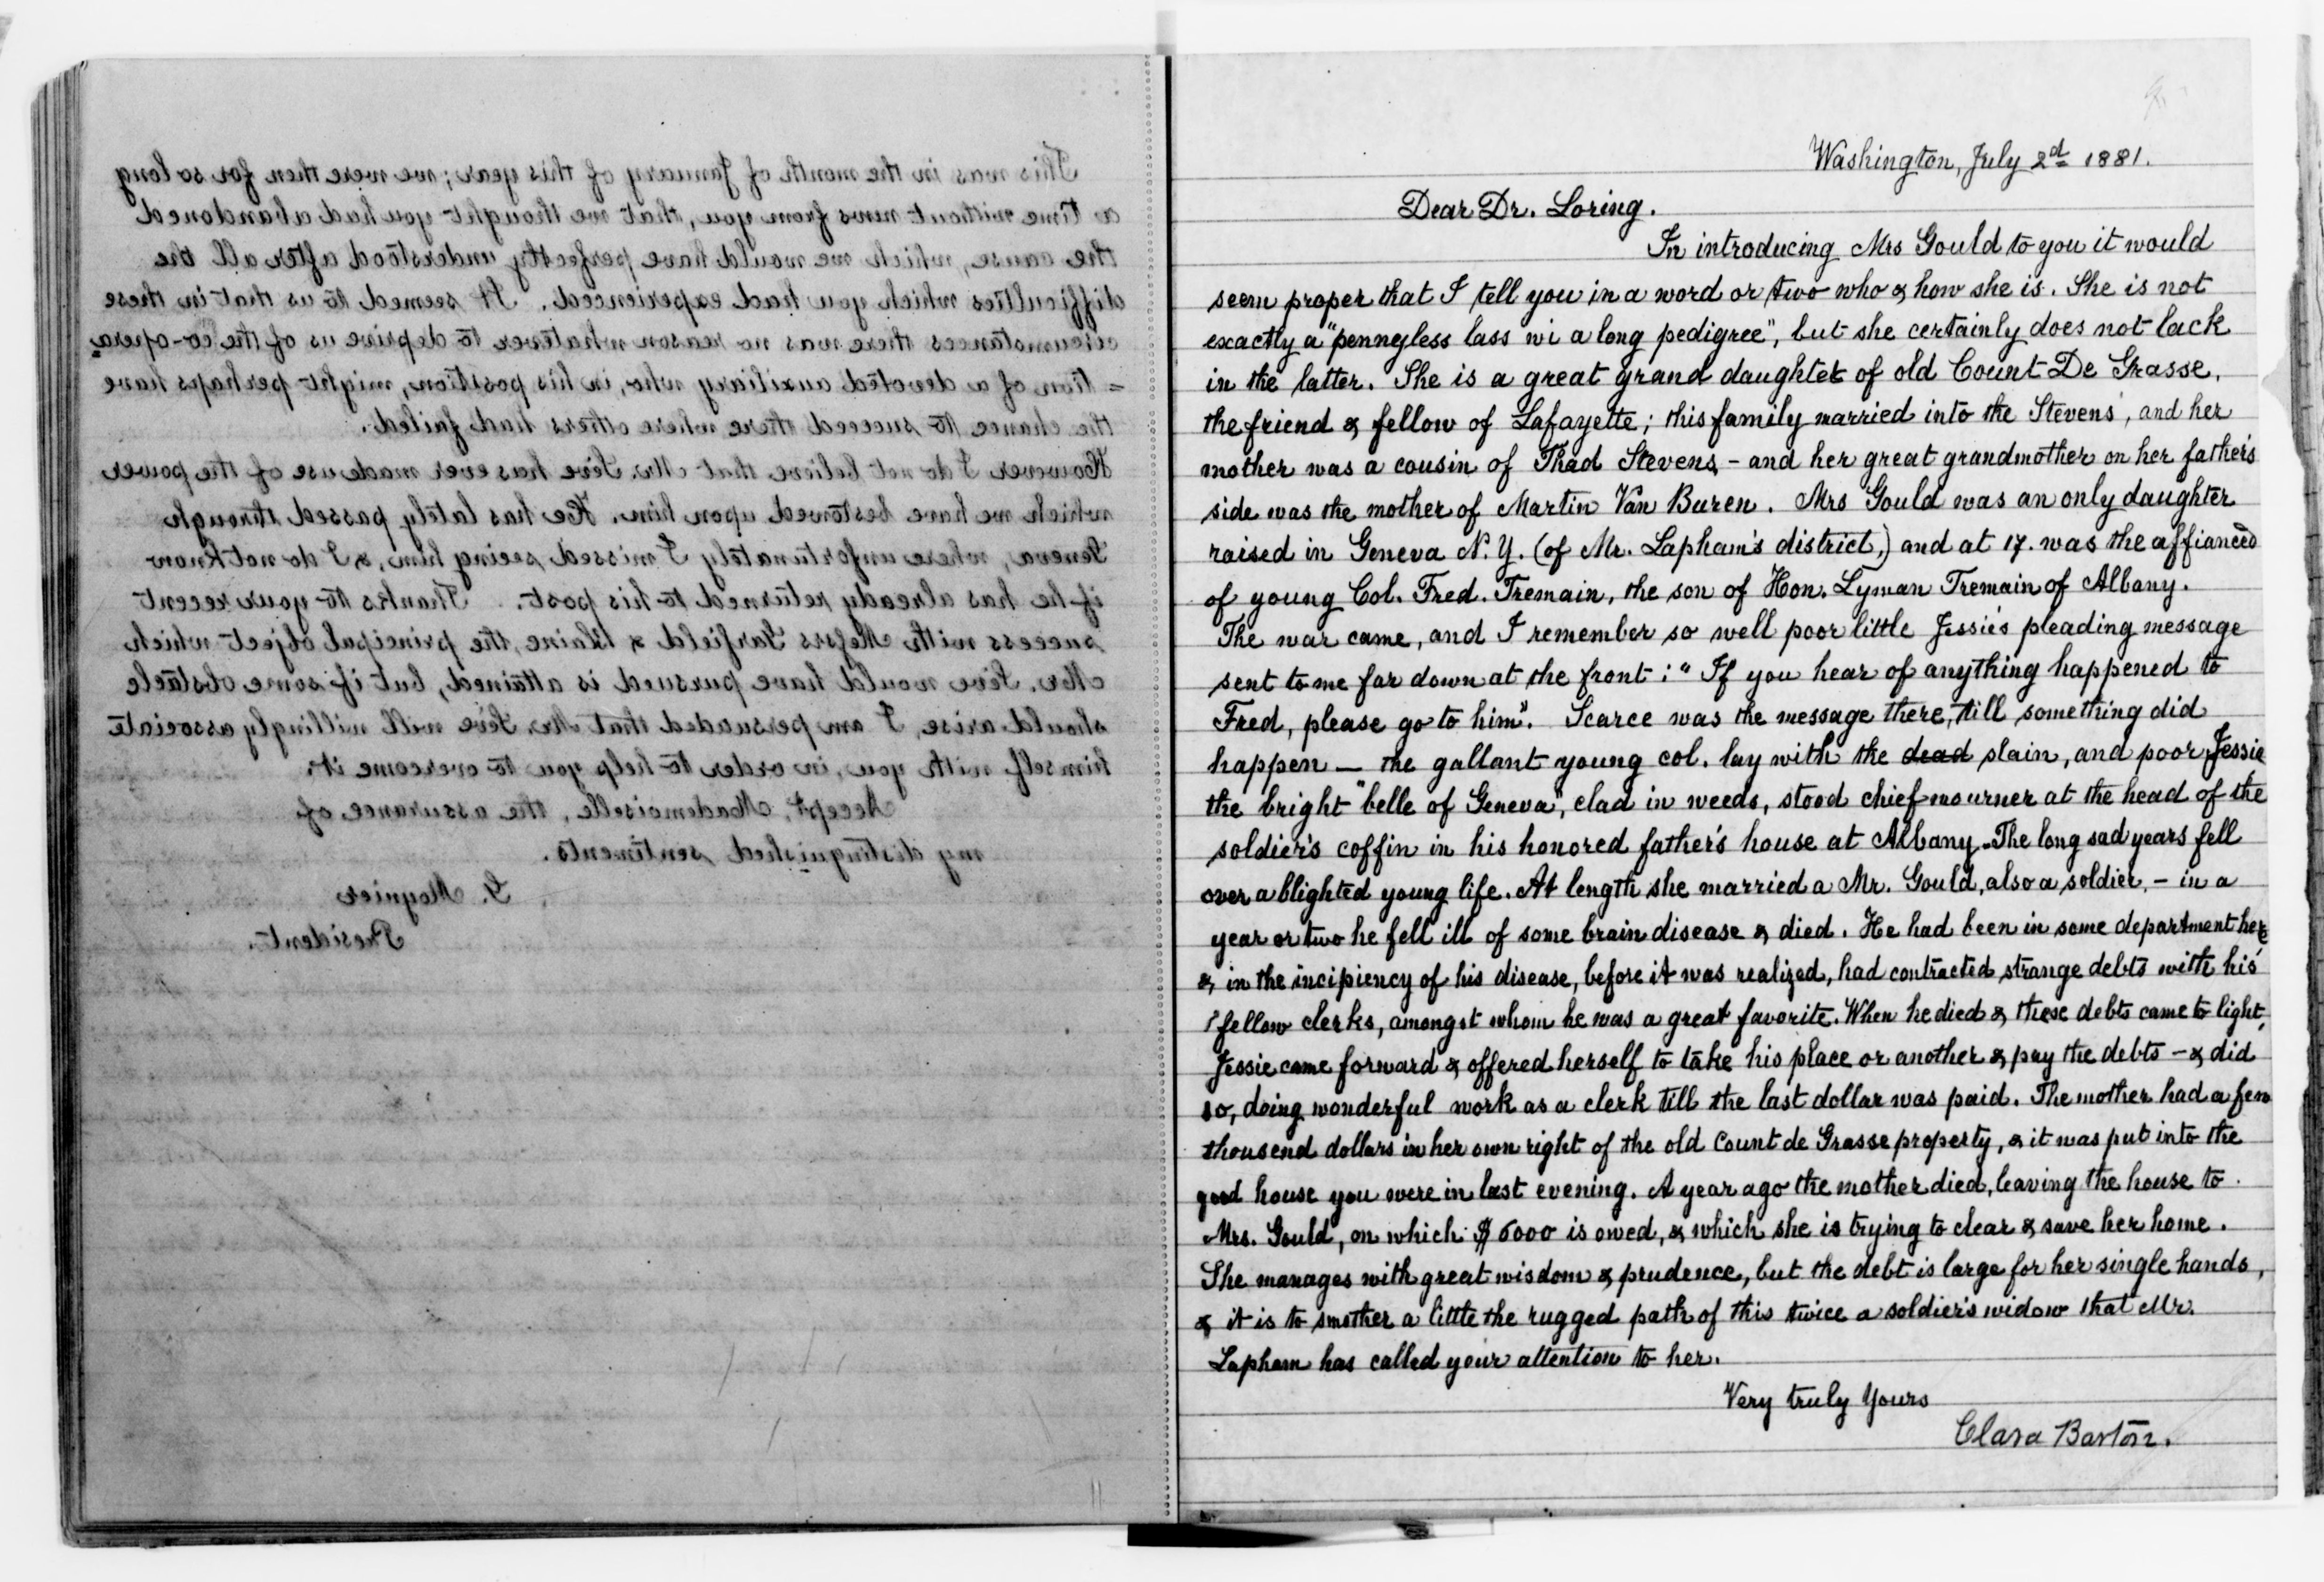 This was in the month of January of this year; we were then for so long
a time without news from you, that we thought you had abandoned
the cause, which we would have perfectly understood after all the
difficulties which you had experienced. It seemed to us that in these
circumstances there was no reason whatever to deprive us of the co-opera=
=tion of a devoted auxiliary who, in his position, might perhaps have
the chance to succeed there where others had failed.
However I do not believe that Mr. Seve has ever made use of the power
which we have bestowed upon him. He has lately passed through
Geneva, where unfortunately I missed seeing him, & I do not know
if he has already returned to his post. Thanks to your recent
success with Messrs Garfield & Blaine, the principal object which
Mr. Seve would have pursued is attained, but if some obstacle
should arise, I am persuaded that Mr. Seve will willingly associate
himself with you, in order to help you to overcome it.
Accept, Mademoiselle, the assurance of
my distinguished sentiments.
G. Moynier
President.
Washington, July 2d 1881.
Dear Dr. Loring.
In introducing Mrs Gould to you it would
seem proper that I tell you in a word or two who & how she is. She is not
exactly a "pennyless lass wi a long pedigree", but she certainly does not lack
in the latter. She is a great grand daughter of old Count De Grasse,
the friend & fellow of Lafayette; this family married into the Stevens', and her
mother was a cousin of Thad Stevens, - and her great grandmother on her father's
side was the mother of Martin Van Buren. Mrs Gould was an only daughter
raised in Geneva N.Y. (of Mr. Lapham's district,) and at 17. was the affianced
of young Col. Fred. Tremain, the son of Hon. Lyman Tremain of Albany.
The war came, and I remember so well poor little Jessie's pleading message
sent to me far down at the front: "If you hear of anything happened to
Fred, please go to him". Scarce was the message there, till something did
happen — the gallant young col. lay with the dead slain, and poor Jessie
the bright "belle of Geneva", clad in weeds, stood chief mourner at the head of the
soldier's coffin in his honored father's house at Albany. The long sad years fell
over a blighted young life. At length she married a Mr. Gould, also a soldier, - in a
year or two he fell ill of some brain disease & died. He had been in some department here
& in the incipiency of his disease, before it was realized, had contracted strange debts with his
fellow clerks, amongst whom he was a great favorite. When he died & these debts came to light,
Jessie came forward & offered herself to take his place or another & pay the debts - & did
so, doing wonderful work as a clerk till the last dollar was paid. The mother had a few
thousend dollars in her own right of the old Count de Grasse property, & it was put into the
good house you were in last evening. A year ago the mother died, leaving the house to
Mrs. Gould, on which $6000 is owed, & which she is trying to clear & save her home.
She manages with great wisdom & prudence, but the debt is large for her single hands,
& it is to smother a little the rugged path of this twice a soldier's widow that Mr.
Lapham has called your attention to her.
Very truly Yours
Clara Barton.